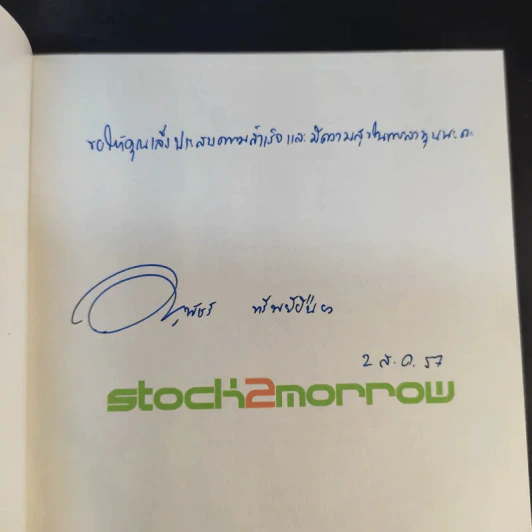 ขอให้คุณเล้งประสบความสำเร็จและมีความสุขในการลงทุนนะคะ
2 ส.ค. 57
stock2morrow